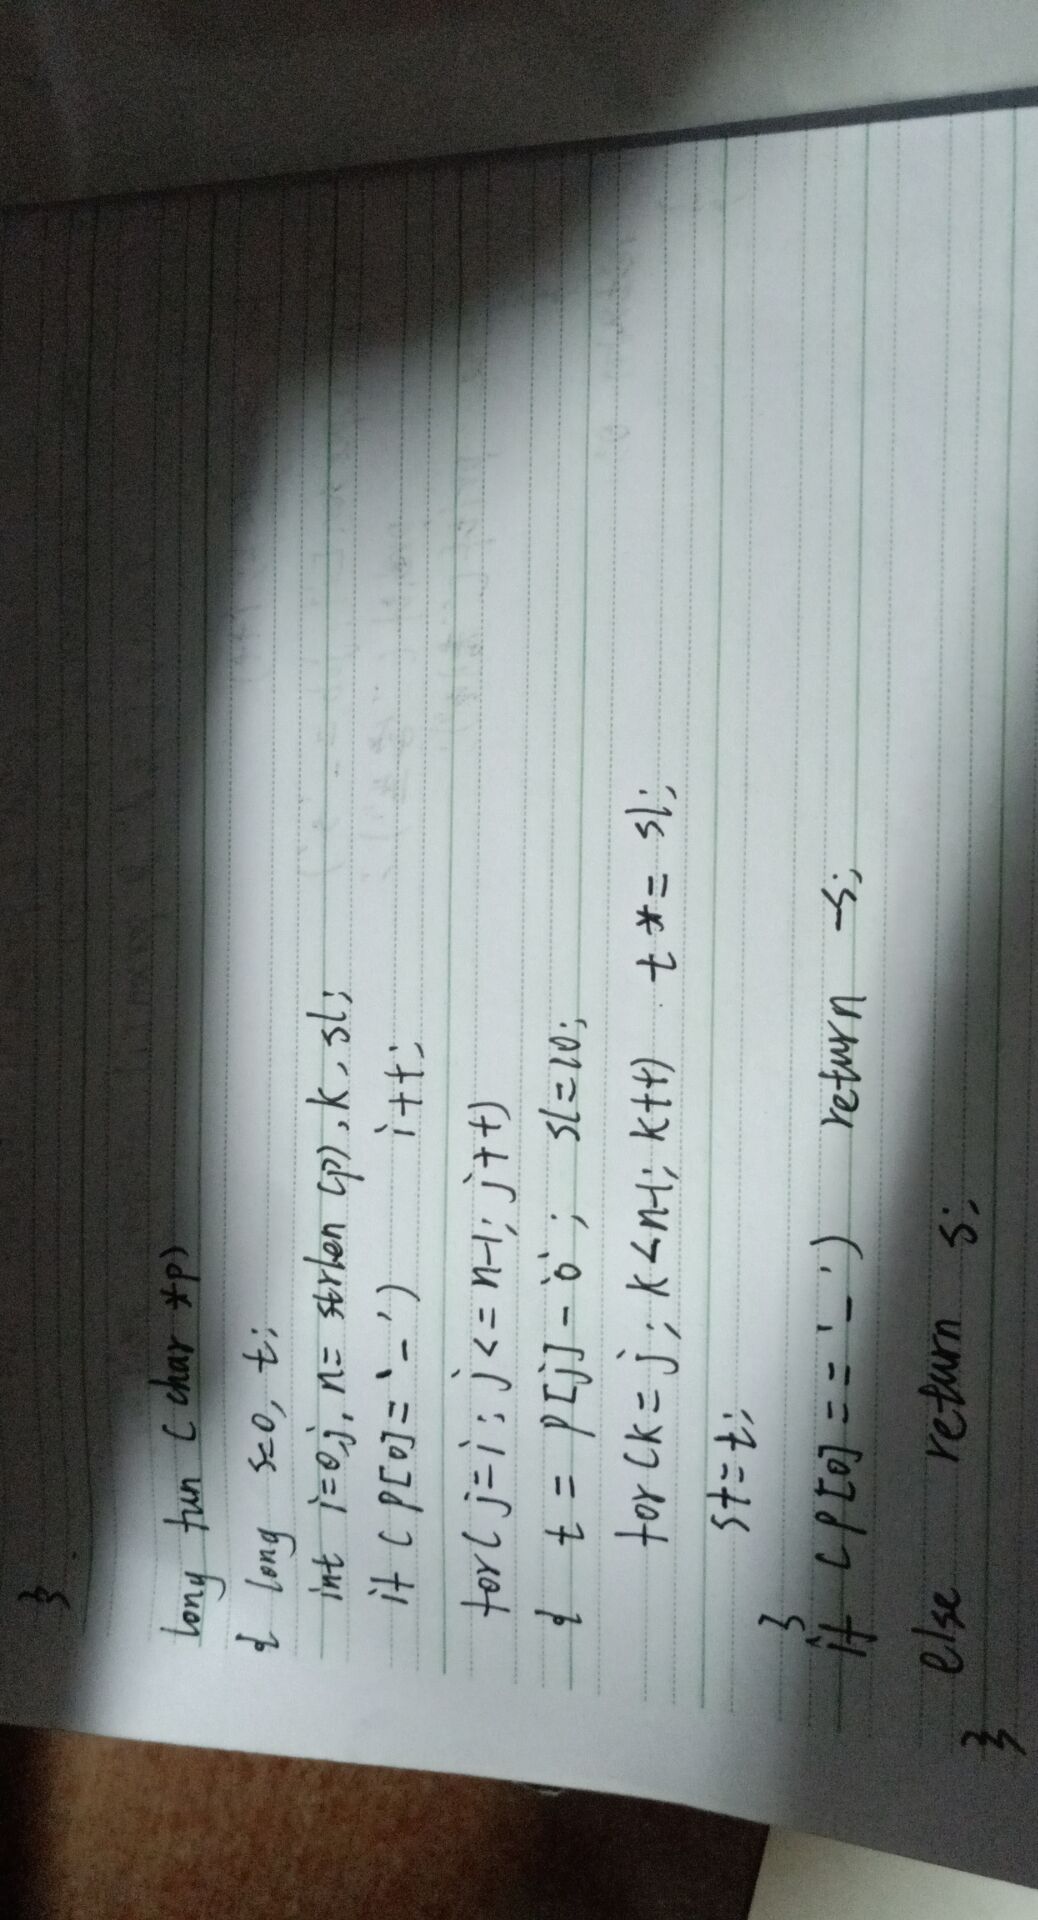 }
long fun (char *p)
{ long s=0, t;
int i=0,j, n= strlen (p), k, sl;
if (p[0]='-') i++;
for(j=i; j<=n-1; j++)
{ t = p[j]-'0'; sl=10;
for(k=j; k<n-1; k++) t*= sl;
s+=t;
}
if (p[0]=='-') return -s;
else return s;
}